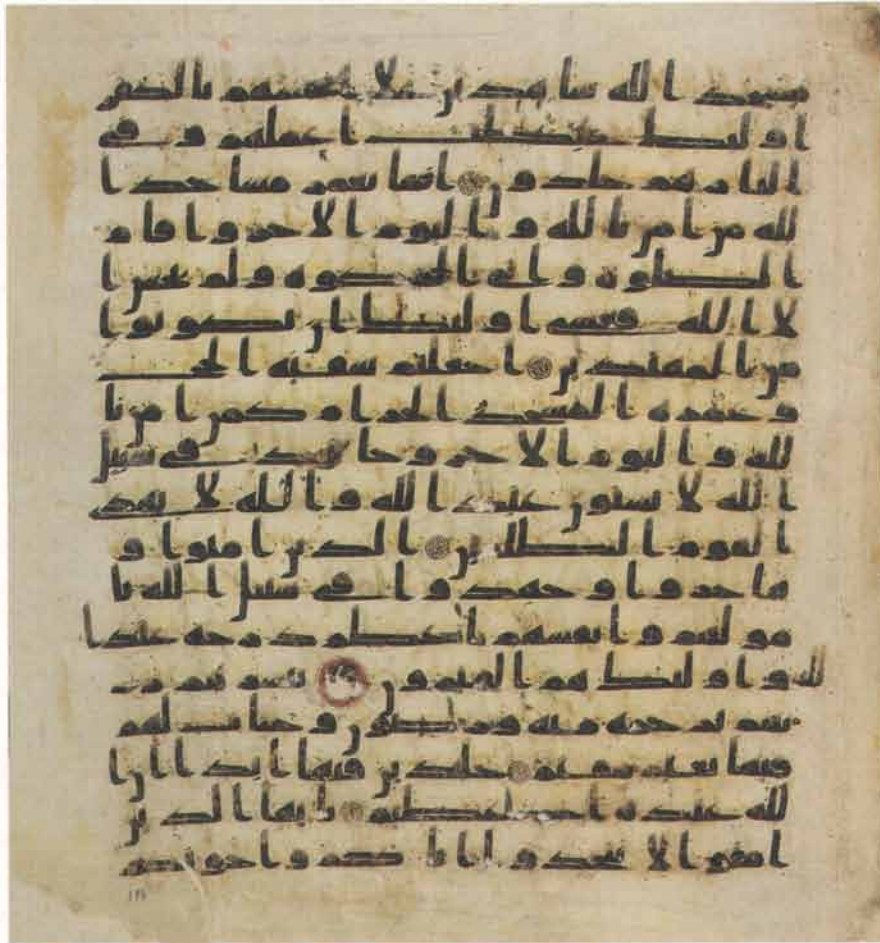 مسجد الله شاهدين على انفسهم بالكفر
اولئك حبطت اعملهم وفي
النار هم خلدون انما يعمر مساجد ا
لله من امن بالله واليوم الاخر واقام
الصلوة واتى الزكوة ولم يخش ا
لا الله فعسى اولئك ان يكونوا
من المهتدين اجعلتم سقية الحج
وعمرة المسجد الحرام كمن امن با
لله واليوم الاخر وجاهد في سبيل
الله لا يستون عند الله والله لا يهدى
القوم الظلمين الذين امنوا و
هاجروا وجهدوا في سبيل الله با
مولهم وانفسهم اعظم درجة عند ا
لله واولئك هم الفئزون يبشرهم ر
بهم برحمة منه ورضون وجنات لهم
فيها نعيم مقيم خلدين فيها ابدا ان ا
لله عنده اجر عظيم يايها الذين
امنوا لا تتخذوا اباكم واخونكم